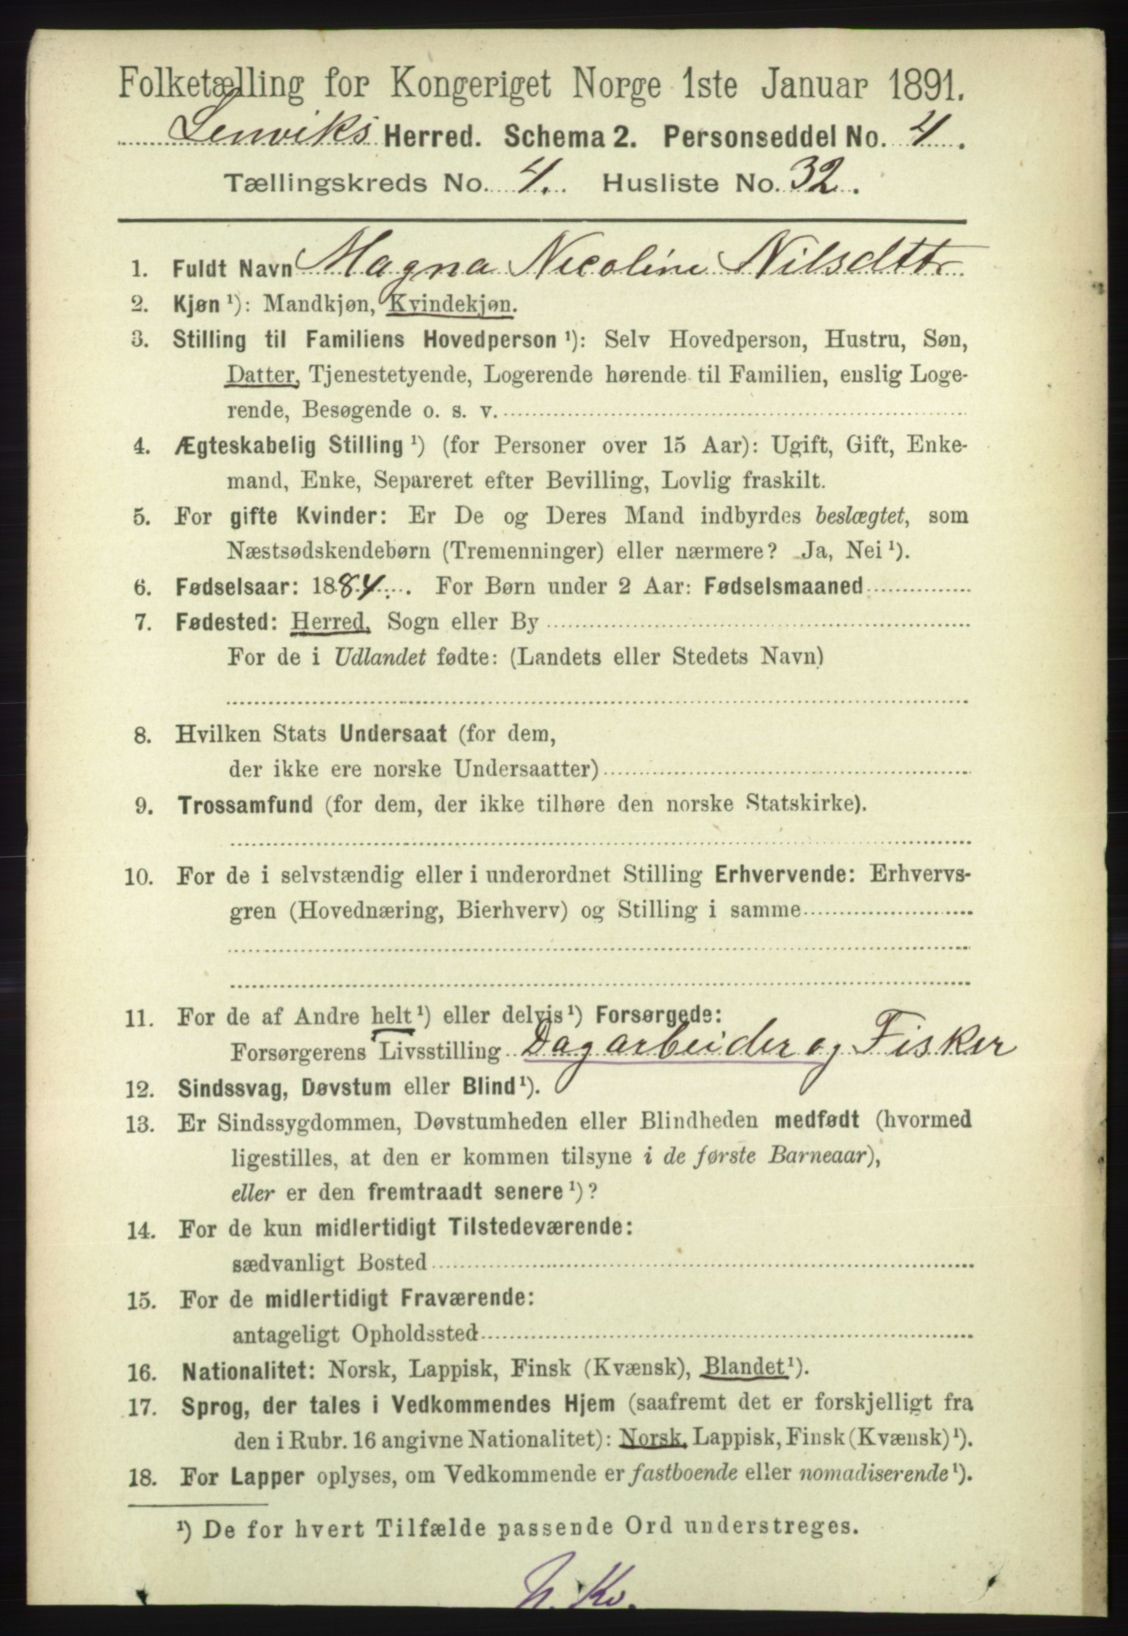 Folketælling for Kongeriget Norge 1ste Januar 1891.
Lenviks Herred. Schema 2. Personseddel No. 4.
Tællingskreds No. 4. Husliste No. 32.
1. Fuldt Navn Magna Nicoline Nilsdttr
2. Kjøn ¹): Mandkjøn, Kvindekjøn.
3. Stilling til Familiens Hovedperson ¹): Selv Hovedperson, Hustru, Søn,
Datter, Tjenestetyende, Logerende hørende til Familien, enslig Loge-
rende, Besøgende o. s. v.
4. Ægteskabelig Stilling ¹) (for Personer over 15 Aar): Ugift, Gift, Enke-
mand, Enke, Separeret efter Bevilling, Lovlig fraskilt.
5. For gifte Kvinder: Er De og Deres Mand indbyrdes beslægtet, som
Næstsødskendebørn (Tremenninger) eller nærmere? Ja, Nei ¹).
6. Fødselsaar: 1884. For Børn under 2 Aar: Fødselsmaaned
7. Fødested: Herred, Sogn eller By
For de i Udlandet fødte: (Landets eller Stedets Navn)
8. Hvilken Stats Undersaat (for dem,
der ikke ere norske Undersaatter)
9. Trossamfund (for dem, der ikke tilhøre den norske Statskirke).
10. For de i selvstændig eller i underordnet Stilling Erhvervende: Erhvervs-
gren (Hovednæring, Bierhverv) og Stilling i samme
11. For de af Andre helt ¹) eller delvis ¹) Forsørgede:
Forsørgerens Livsstilling Dagarbeider og Fisker
12. Sindssvag, Døvstum eller Blind ¹).
13. Er Sindssygdommen, Døvstumheden eller Blindheden medfødt (hvormed
ligestilles, at den er kommen tilsyne i de første Barneaar),
eller er den fremtraadt senere ¹)?
14. For de kun midlertidigt Tilstedeværende:
sædvanligt Bosted
15. For de midlertidigt Fraværende:
antageligt Opholdssted
16. Nationalitet: Norsk, Lappisk, Finsk (Kvænsk), Blandet ¹).
17. Sprog, der tales i Vedkommendes Hjem (saafremt det er forskjelligt fra
den i Rubr. 16 angivne Nationalitet): Norsk, Lappisk, Finsk (Kvænsk) ¹).
18. For Lapper oplyses, om Vedkommende er fastboende eller nomadiserende ¹).
¹) De for hvert Tilfælde passende Ord understreges.
N. Kv.